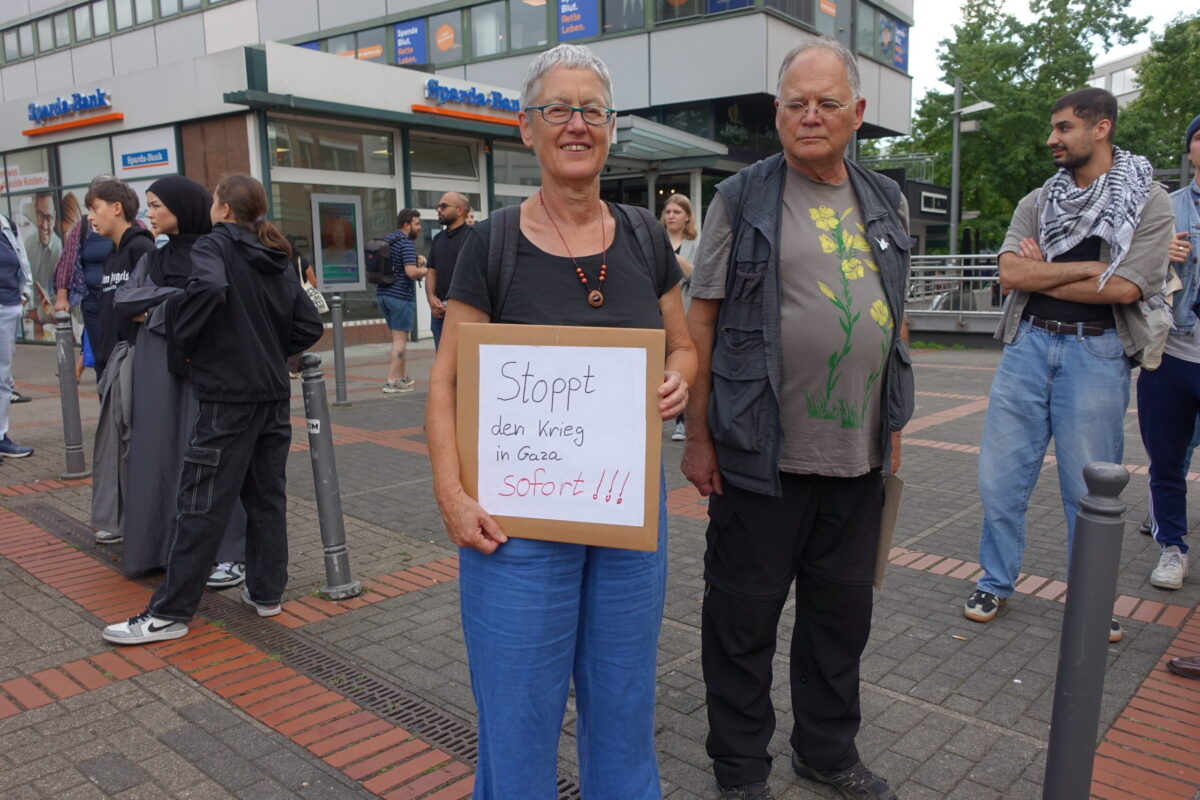 Spende
Blut.
Rette
Leben.
Spende
Blut.
Rette
Leben.
Sparda-Bank
Sparda-Ban
Sparda-Bank
Stoppt
den Krieg
in Gaza
sofort !!!